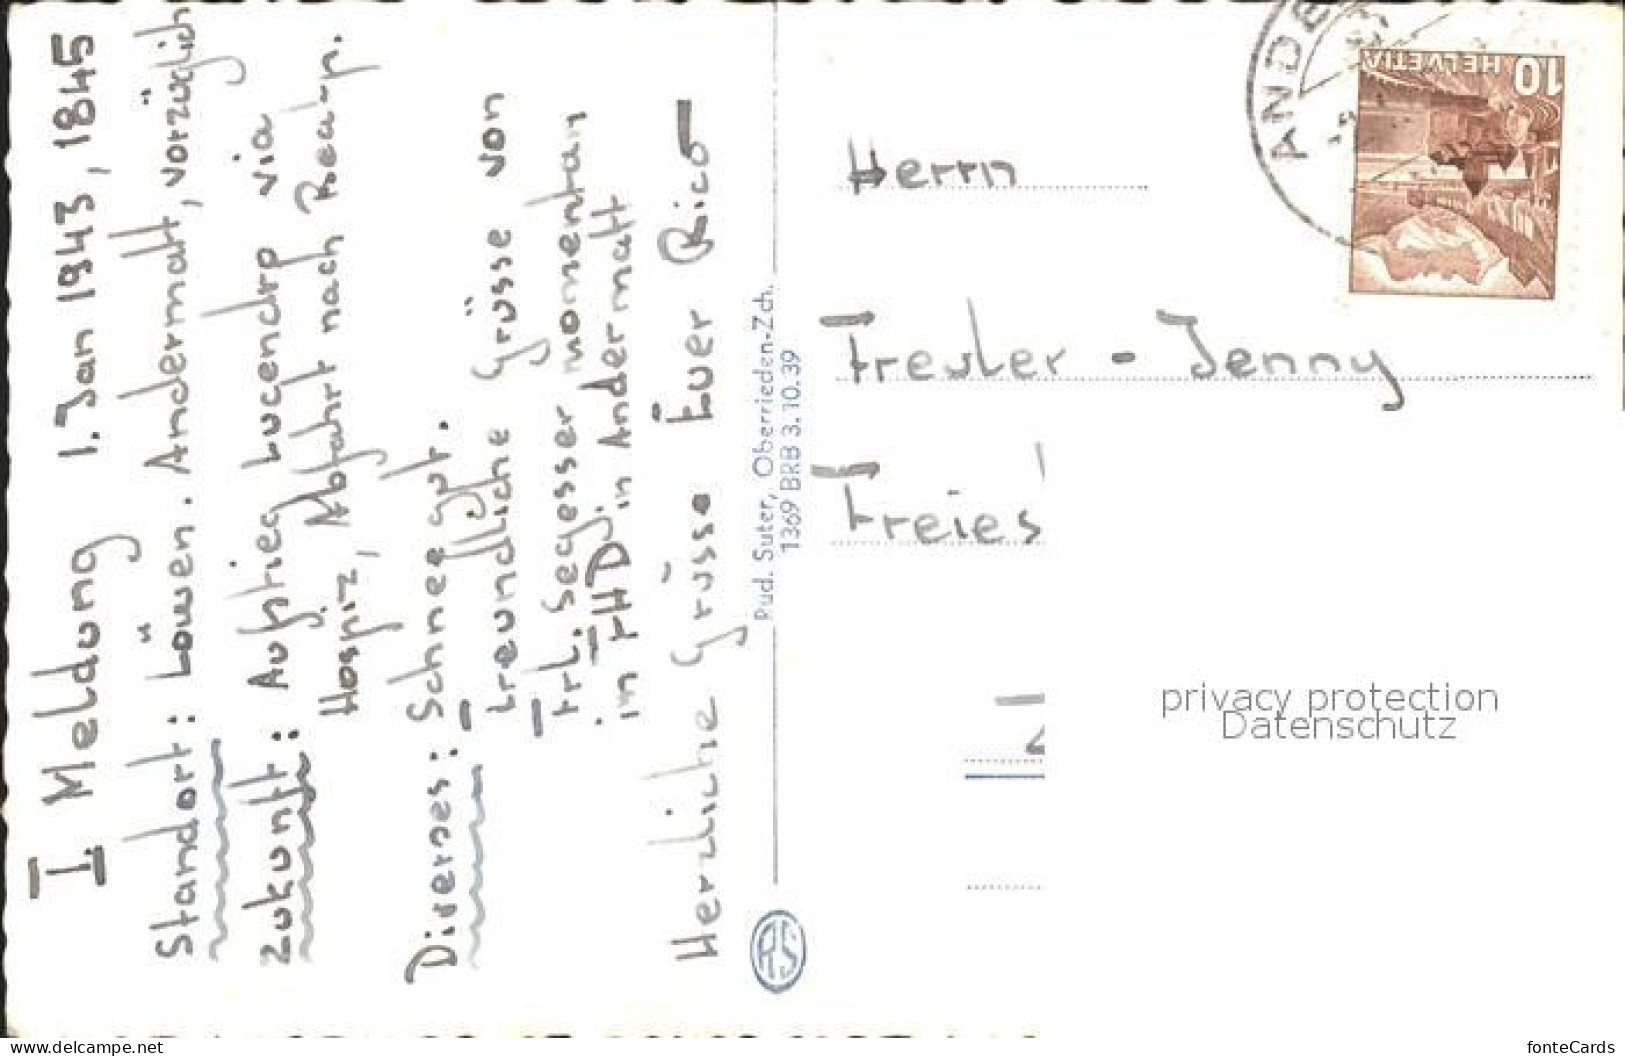 I. Meldung 1. Jan 1943, 1845
Standort: Löwen. Andermatt, vorzüglich
Zukunft: Aufstieg Lucendro via
Hospiz, Abfahrt nach Realp.
Diverses: Schnee gut.
Freundliche Grüsse von
Frl. Segesser momentan
im FHD. in Andermatt
Herzliche Grüsse Euer Rico
Rud. Suter, Oberrieden-Zch.
1369 BRB 3.10.39
RS
ANDE
HELVETIA 10
Herrn
Freuler - Jenny
Freies
privacy protection
Datenschutz
www.delcampe.net
fonteCards